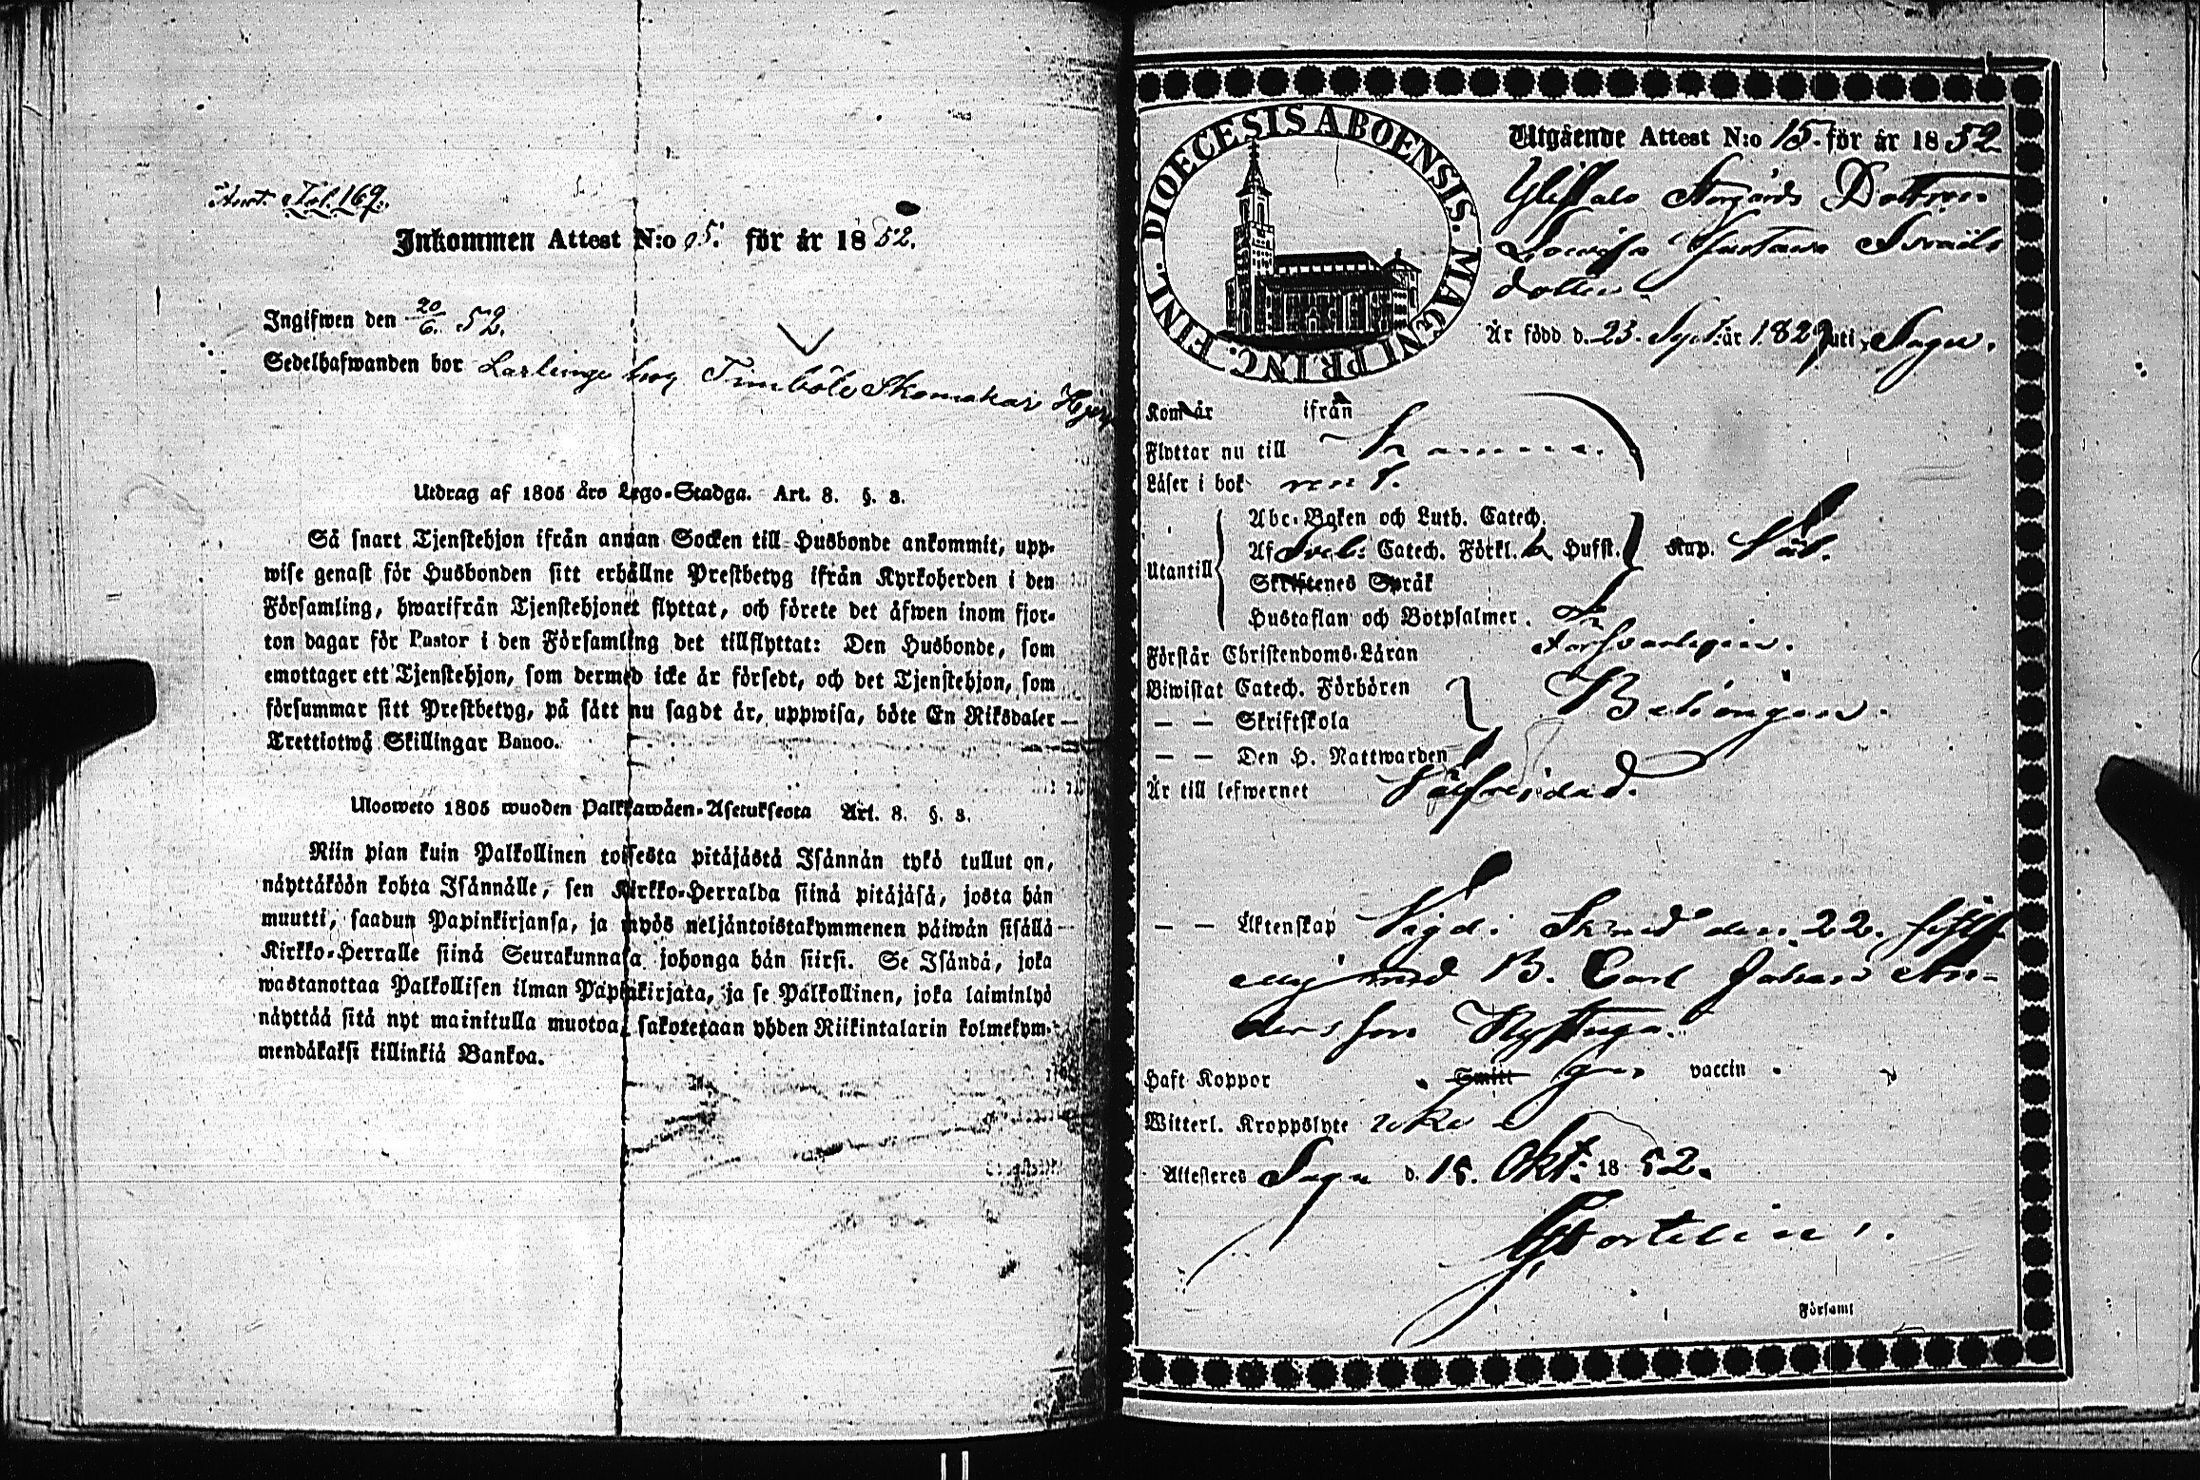 Fol. 169.
Inkommen Attest N:o 95. för år 1852.
Ingifwen den 20/6. 52.
Sedelhafwanden bor Larlinge hos Timböle Skomakar
Utdrag af 1805 års Lego-Stadga. Art. 8. §. 3.
Så snart Tjenstehjon ifrån annan Socken till Husbonde ankommit, upp-
wise genast för Husbonden sitt erhållne Prestbetyg ifrån Kyrkoherden i den
Församling, hwarifrån Tjenstehjonet flyttat, och förete det äfwen inom fjor-
ton dagar för Pastor i den Församling det tillflyttat: Den Husbonde, som
emottager ett Tjenstehjon, som dermed icke är försedt, och det Tjenstehjon, som
försummar sitt Prestbetyg, på sätt nu sagdt är, uppwisa, böte En Riksdaler
Trettiotwå Skillingar Banco.
Ulosweto 1805 wuoden Palkkawäen-Asetuksesta Art. 8. §. 3.
Niin pian kuin Palkollinen toisesta pitäjästä Isännän tykö tullut on,
näyttäköön kohta Isännälle, sen Kirkko-Herralda siinä pitäjäsä, josta hän
muutti, saadun Papinkirjansa, ja myös neljäntoistakymmenen päiwän sisällä
Kirkko-Herralle siinä Seurakunnasa johonga hän siirsi. Se Isändä, joka
wastanottaa Palkollisen ilman Papinkirjata, ja se Palkollinen, joka laiminlyö
näyttää sitä nyt mainitulla muotoa, sakotetaan yhden Riikintalarin kolmekym-
mendäkaksi killinkiä Bankoa.
DIOECESIS ABOENSIS. MAGNI PRINC. FINL.
Utgående Attest N:o 15. för år 1852
Storgårds Dottren
Lovisa Gustava Israels
dotter
Är född d. 23. Sept. år 1829 uti Sagu.
Kom år ifrån
Flyttar nu till
Läser i bok
Abc-Boken och Luth. Catech.
Af Sveb: Catech. Förkl. Hufst. Kap.
Utantill
Skriftenes Språk
Hustaflan och Botpsalmer.
Förstår Christendoms-Läran Försvarligen.
Biwistat Catech. Förhören Behörigen.
— — Skriftskola
— — Den H. Nattwarden
Är till lefwernet Välfrejdad.
— — Äktenskap Vigd i Sagu den 22.
med B. Carl Johan An-
dersson
Haft Koppor Smitt vaccin
Witterl. Kroppslyte icke
Attesteras Sagu d. 15. Okt: 1852.
Församl